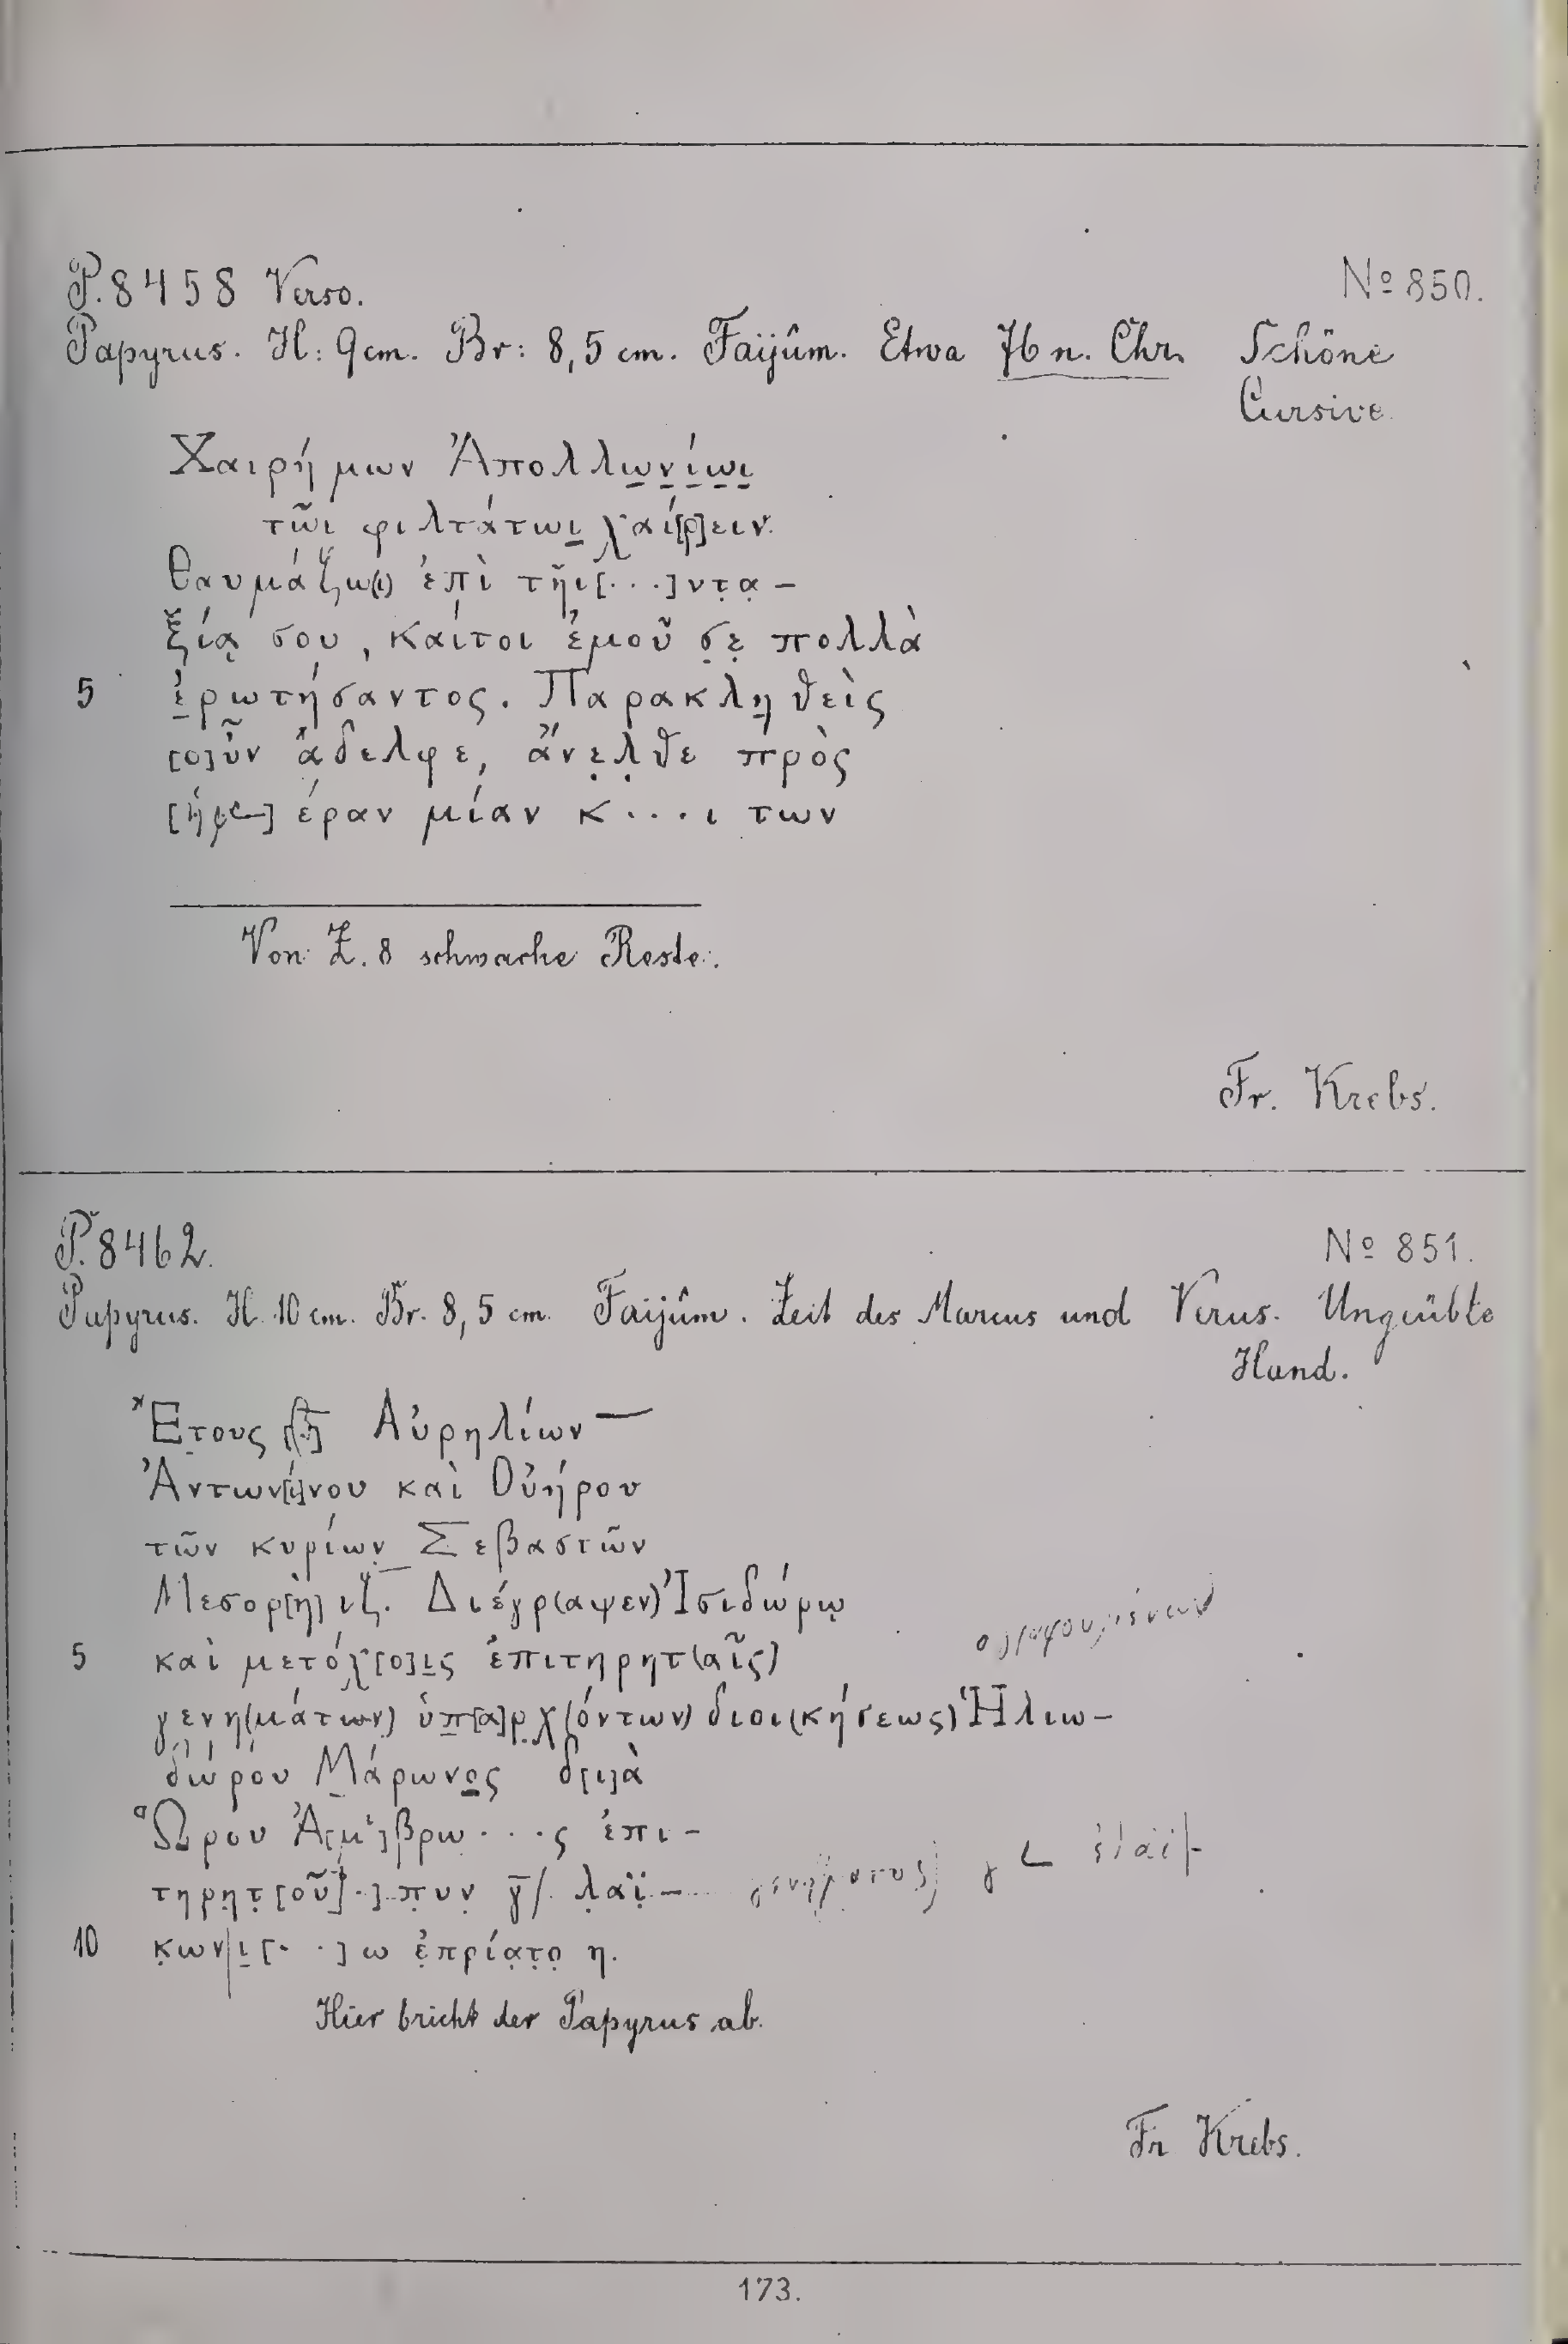 P. 8458 Verso. Nº 850.
Papyrus. H: 9 cm. Br: 8,5 cm. Faijûm. Etwa 76 n. Chr. Schöne
Cursive.
Χαιρήμων Ἀπολλωνίωι
τῶι φιλτάτωι χαί[ρ]ειν.
Θαυμάζω(ι) ἐπὶ τῆι [...]ντ̣α̣-
ξίᾳ σου, καίτοι ἐμοῦ σ̣ε̣ πολλὰ
5 ἐρωτήσαντος. Παρακληθεὶς
[ο]ὖν ἄδελφε, ἄνε̣λ̣θε πρὸς
[ἡμ]έραν μίαν κ...ι των
Von Z. 8 schwache Reste.
Fr. Krebs.
P. 8462. Nº 851.
Papyrus. H. 10 cm. Br. 8,5 cm. Faijûm. Zeit des Marcus und Verus. Ungeübte
Hand.
Ἔτους Αὐρηλίων
Ἀντων[ί]νου καὶ Οὐήρου
τῶν κυρίων Σεβαστῶν
Μεσορ[ὴ] ιζ. Διέγρ(αψεν) Ἰσιδώρῳ
5 καὶ μετόχ[ο]ις ἐπιτηρητ(αῖς)
γενη(μάτων) ὑπ[α]ρχ(όντων) διοι(κήσεως) Ἡλιω-
δώρου Μάρωνος δ[ι]ὰ
Ὥρου Ἀ[μ]βρω...ς ἐπι-
τηρη̣τ̣[οῦ .] π̣υν̣ γ̅/ λ̣αϊ̣-
10 κ̣ων ι[. .]ω ἐ̣πρία̣τ̣ο̣ η.
Hier bricht der Papyrus ab.
Fr Krebs.
173.